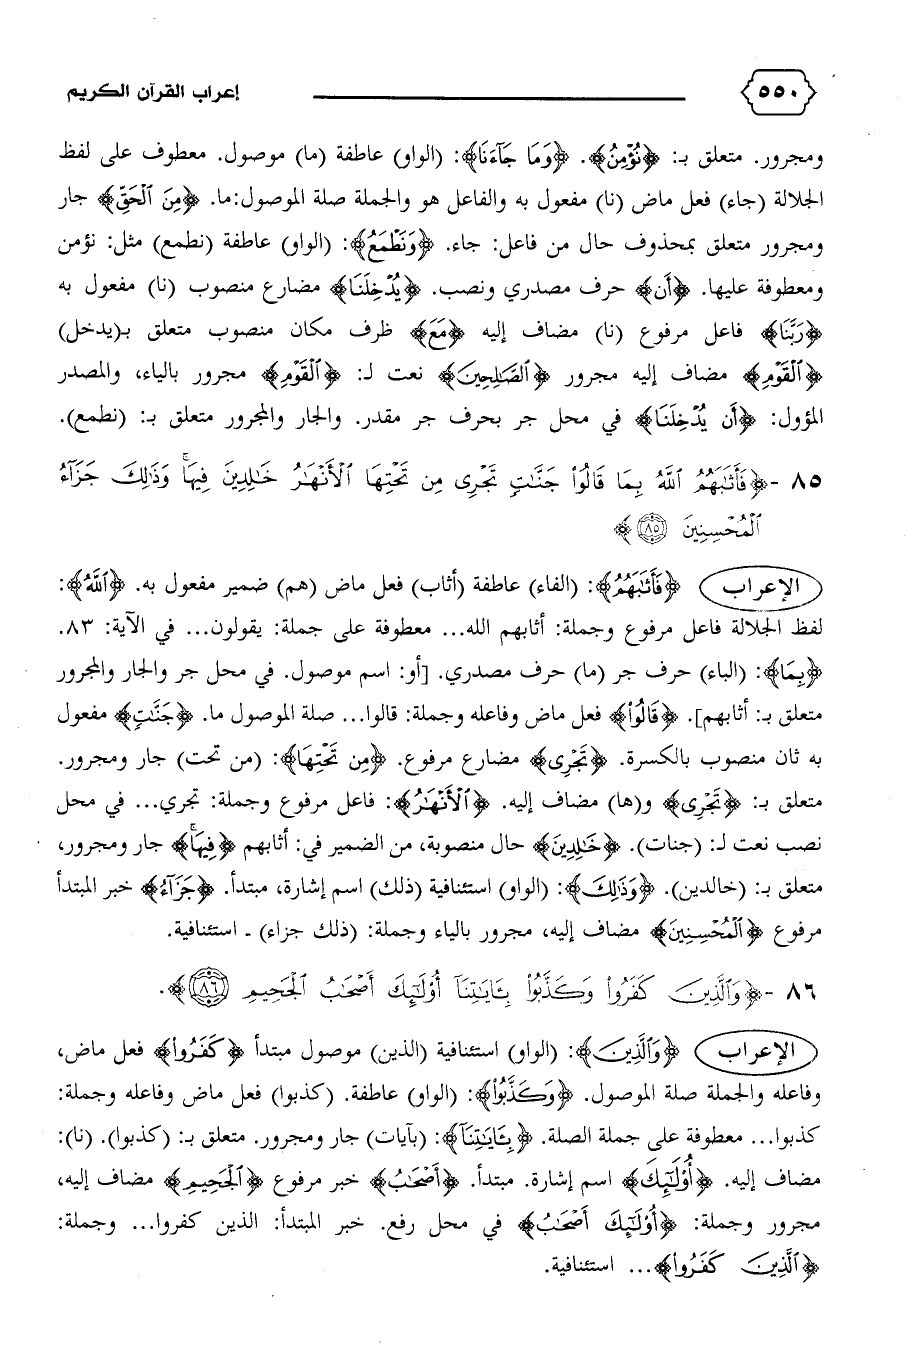 ٥٥٠
إعراب القرآن الكريم
ومجرور. متعلق بـ: ﴿نُؤْمِنُ﴾. ﴿وَمَا جَآءَنَا﴾: (الواو) عاطفة (ما) موصول. معطوف على لفظ
الجلالة (جاء) فعل ماض (نا) مفعول به والفاعل هو والجملة صلة الموصول:ما. ﴿مِنَ ٱلْحَقِّ﴾ جار
ومجرور متعلق بمحذوف حال من فاعل: جاء. ﴿وَنَطْمَعُ﴾: (الواو) عاطفة (نطمع) مثل: نؤمن
ومعطوفة عليها. ﴿أَن﴾ حرف مصدري ونصب. ﴿يُدْخِلَنَا﴾ مضارع منصوب (نا) مفعول به
﴿رَبُّنَا﴾ فاعل مرفوع (نا) مضاف إليه ﴿مَعَ﴾ ظرف مكان منصوب متعلق بـ(يدخل)
﴿ٱلْقَوْمِ﴾ مضاف إليه مجرور ﴿ٱلصَّٰلِحِينَ﴾ نعت لـ: ﴿ٱلْقَوْمِ﴾ مجرور بالياء، والمصدر
المؤول: ﴿أَن يُدْخِلَنَا﴾ في محل جر بحرف جر مقدر. والجار والمجرور متعلق بـ: (نطمع).
٨٥ -﴿فَأَثَٰبَهُمُ ٱللَّهُ بِمَا قَالُوا۟ جَنَّٰتٍ تَجْرِى مِن تَحْتِهَا ٱلْأَنْهَٰرُ خَٰلِدِينَ فِيهَا ۚ وَذَٰلِكَ جَزَآءُ
ٱلْمُحْسِنِينَ ٨٥﴾
الإعراب ﴿فَأَثَٰبَهُمُ﴾: (الفاء) عاطفة (أثاب) فعل ماض (هم) ضمير مفعول به. ﴿ٱللَّهُ﴾:
لفظ الجلالة فاعل مرفوع وجملة: أثابهم الله... معطوفة على جملة: يقولون... في الآية: ٨٣.
﴿بِمَا﴾: (الباء) حرف جر (ما) حرف مصدري. [أو: اسم موصول. في محل جر والجار والمجرور
متعلق بـ: أثابهم]. ﴿قَالُوا۟﴾ فعل ماض وفاعله وجملة: قالوا... صلة الموصول ما. ﴿جَنَّٰتٍ﴾ مفعول
به ثان منصوب بالكسرة. ﴿تَجْرِى﴾ مضارع مرفوع. ﴿مِن تَحْتِهَا﴾: (من تحت) جار ومجرور.
متعلق بـ: ﴿تَجْرِى﴾ و(ها) مضاف إليه. ﴿ٱلْأَنْهَٰرُ﴾: فاعل مرفوع وجملة: تجري... في محل
نصب نعت لـ: (جنات). ﴿خَٰلِدِينَ﴾ حال منصوبة، من الضمير في: أثابهم ﴿فِيهَا ۚ﴾ جار ومجرور،
متعلق بـ: (خالدين). ﴿وَذَٰلِكَ﴾: (الواو) استئنافية (ذلك) اسم إشارة، مبتدأ. ﴿جَزَآءُ﴾ خبر المبتدأ
مرفوع ﴿ٱلْمُحْسِنِينَ﴾ مضاف إليه، مجرور بالياء وجملة: (ذلك جزاء) ـ استئنافية.
٨٦ -﴿وَٱلَّذِينَ كَفَرُوا۟ وَكَذَّبُوا۟ بِـَٔايَٰتِنَآ أُو۟لَٰٓئِكَ أَصْحَٰبُ ٱلْجَحِيمِ ٨٦﴾.
الإعراب ﴿وَٱلَّذِينَ﴾: (الواو) استئنافية (الذين) موصول مبتدأ ﴿كَفَرُوا۟﴾ فعل ماض،
وفاعله والجملة صلة الموصول. ﴿وَكَذَّبُوا۟﴾: (الواو) عاطفة. (كذبوا) فعل ماض وفاعله وجملة:
كذبوا... معطوفة على جملة الصلة. ﴿بِـَٔايَٰتِنَآ﴾: (بآيات) جار ومجرور. متعلق بـ: (كذبوا). (نا):
مضاف إليه. ﴿أُو۟لَٰٓئِكَ﴾ اسم إشارة. مبتدأ. ﴿أَصْحَٰبُ﴾ خبر مرفوع ﴿ٱلْجَحِيمِ﴾ مضاف إليه،
مجرور وجملة: ﴿أُو۟لَٰٓئِكَ أَصْحَٰبُ﴾ في محل رفع. خبر المبتدأ: الذين كفروا... وجملة:
﴿ٱلَّذِينَ كَفَرُوا۟﴾... استئنافية.